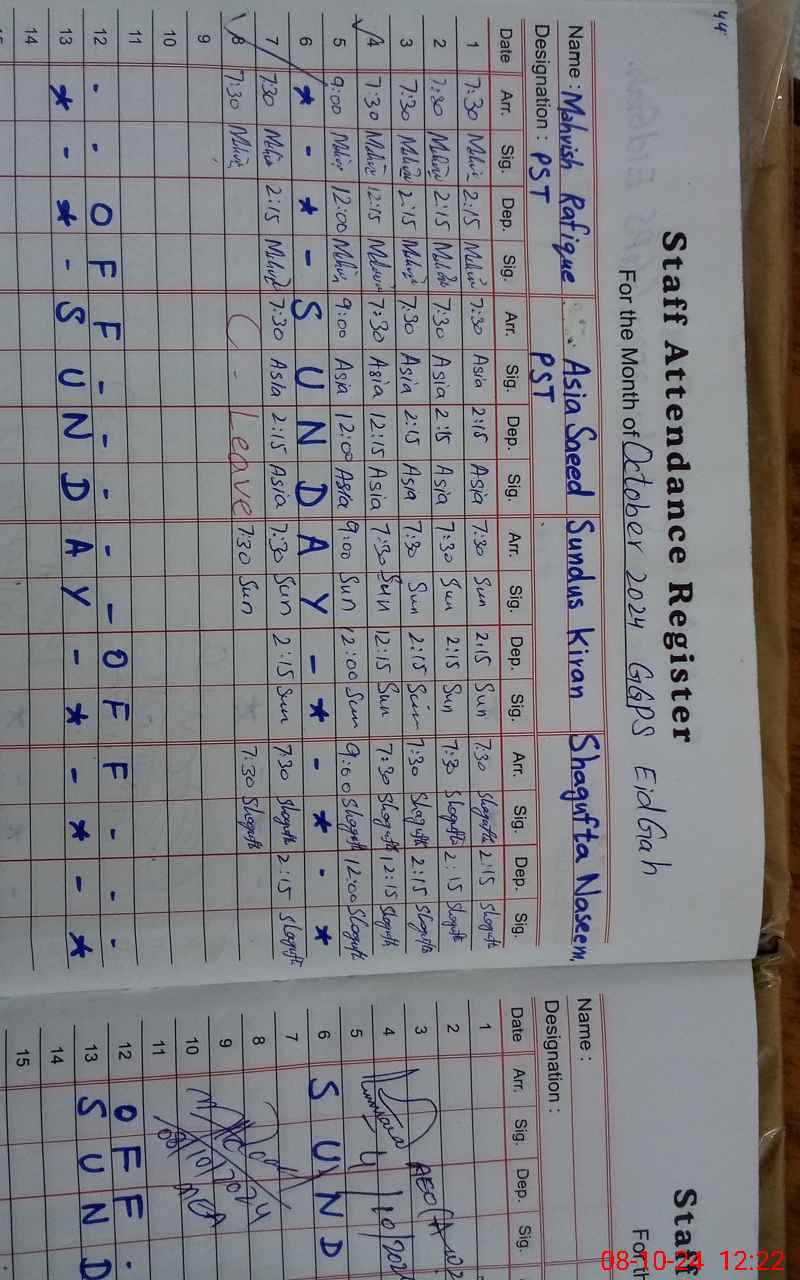 44
Staff Attendance Register
For the Month of October 2024 GGPS EidGah
Name : Mahvish Rafique Asia Saeed Sundus Kiran Shagufta Naseem
Designation : PST PST
Date Arr. Sig. Dep. Sig. Arr. Sig. Dep. Sig. Arr. Sig. Dep. Sig. Arr. Sig. Dep. Sig.
1 7:30 2:15 7:30 Asia 2:15 Asia 7:30 Sun 2:15 Sun 7:30 Shagufta 2:15 Shagufta
2 7:30 2:15 7:30 Asia 2:15 Asia 7:30 Sun 2:15 Sun 7:30 Shagufta 2:15 Shagufta
3 7:30 2:15 7:30 Asia 2:15 Asia 7:30 Sun 2:15 Sun 7:30 Shagufta 2:15 Shagufta
4 7:30 12:15 7:30 Asia 12:15 Asia 7:30 Sun 12:15 Sun 7:30 Shagufta 12:15 Shagufta
5 9:00 12:00 9:00 Asia 12:00 Asia 9:00 Sun 12:00 Sun 9:00 Shagufta 12:00 Shagufta
6 * - * - S U N D A Y - * - * - *
7 7:30 2:15 7:30 Asia 2:15 Asia 7:30 Sun 2:15 Sun 7:30 Shagufta 2:15 Shagufta
8 7:30 Leave 7:30 Sun 7:30 Shagufta
9
10
11
12 - - O F F - - - - - O F F - - -
13 * - * - S U N D A Y - * - * - *
14
Staff
For th
Name :
Designation :
Date Arr. Sig. Dep. Sig.
1
2
3 AEO
4 4/10/202
5
6 S U N D
7
8
9 08/10/2024
10
11
12 O F F -
13 S U N D
14
15
08-10-24 12:22